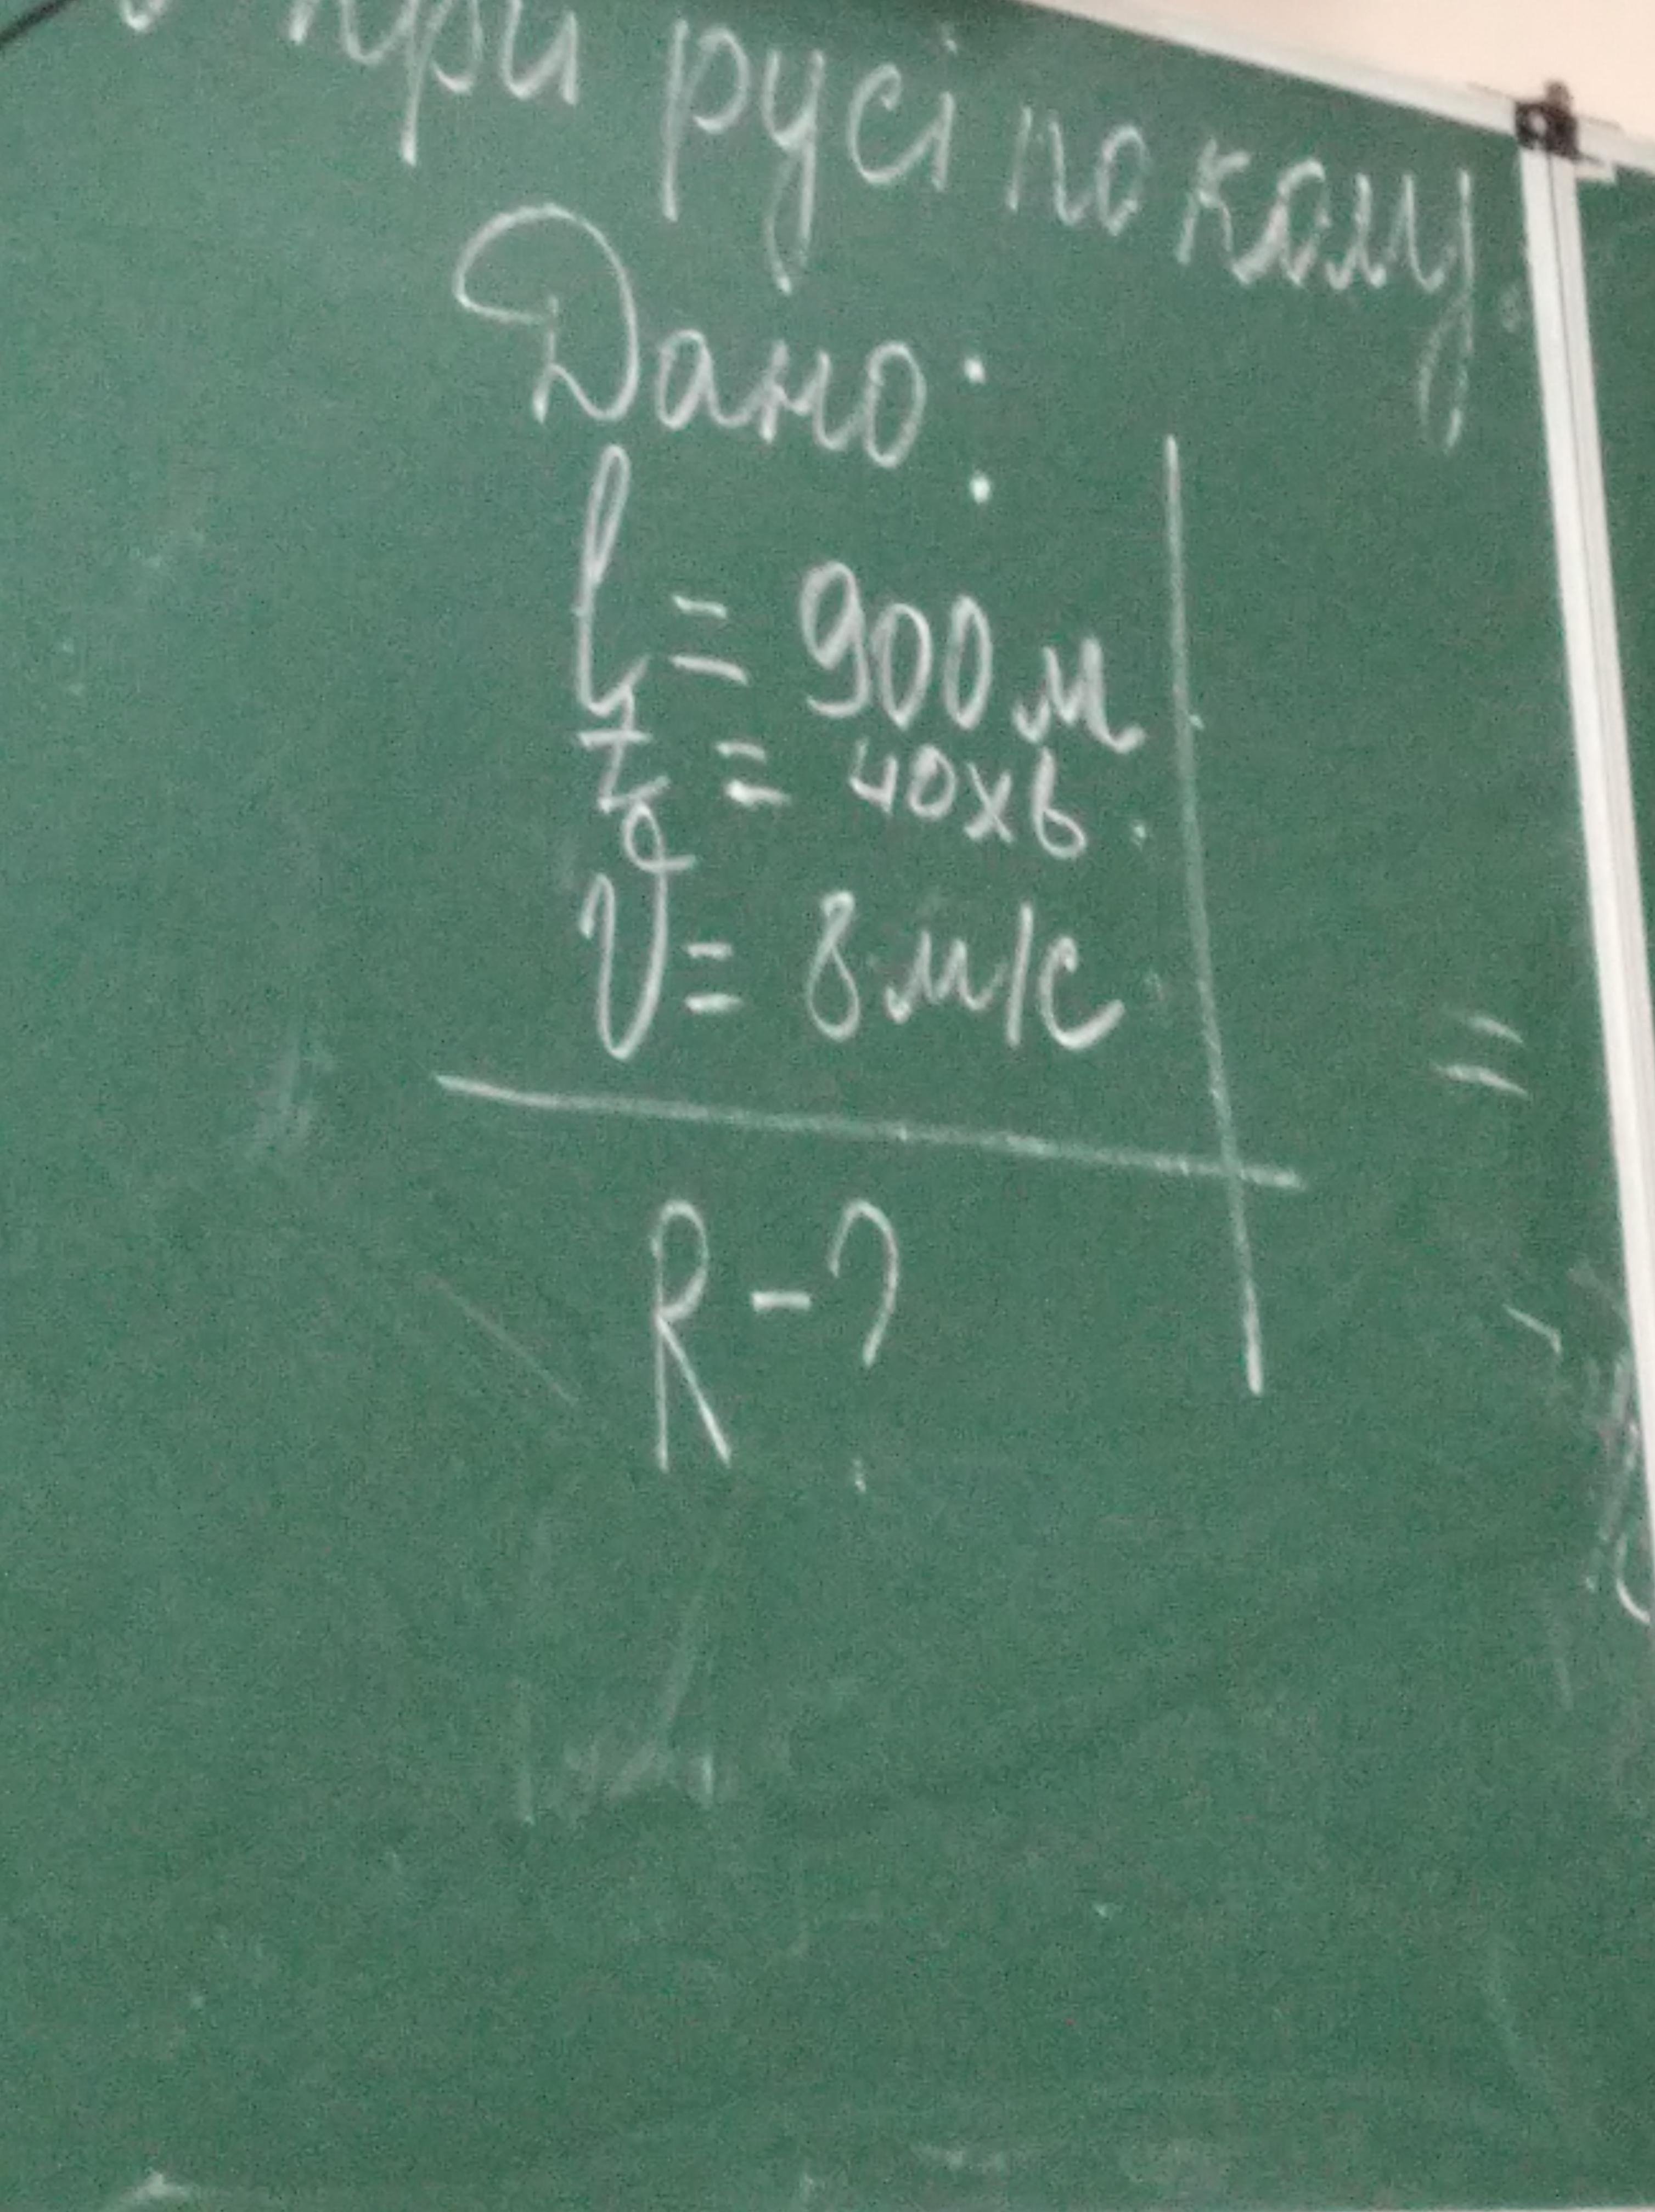 при русі по колу.
Дано:
l = 900 м
t = 40 хв.
v = 8 м/с
=
R - ?